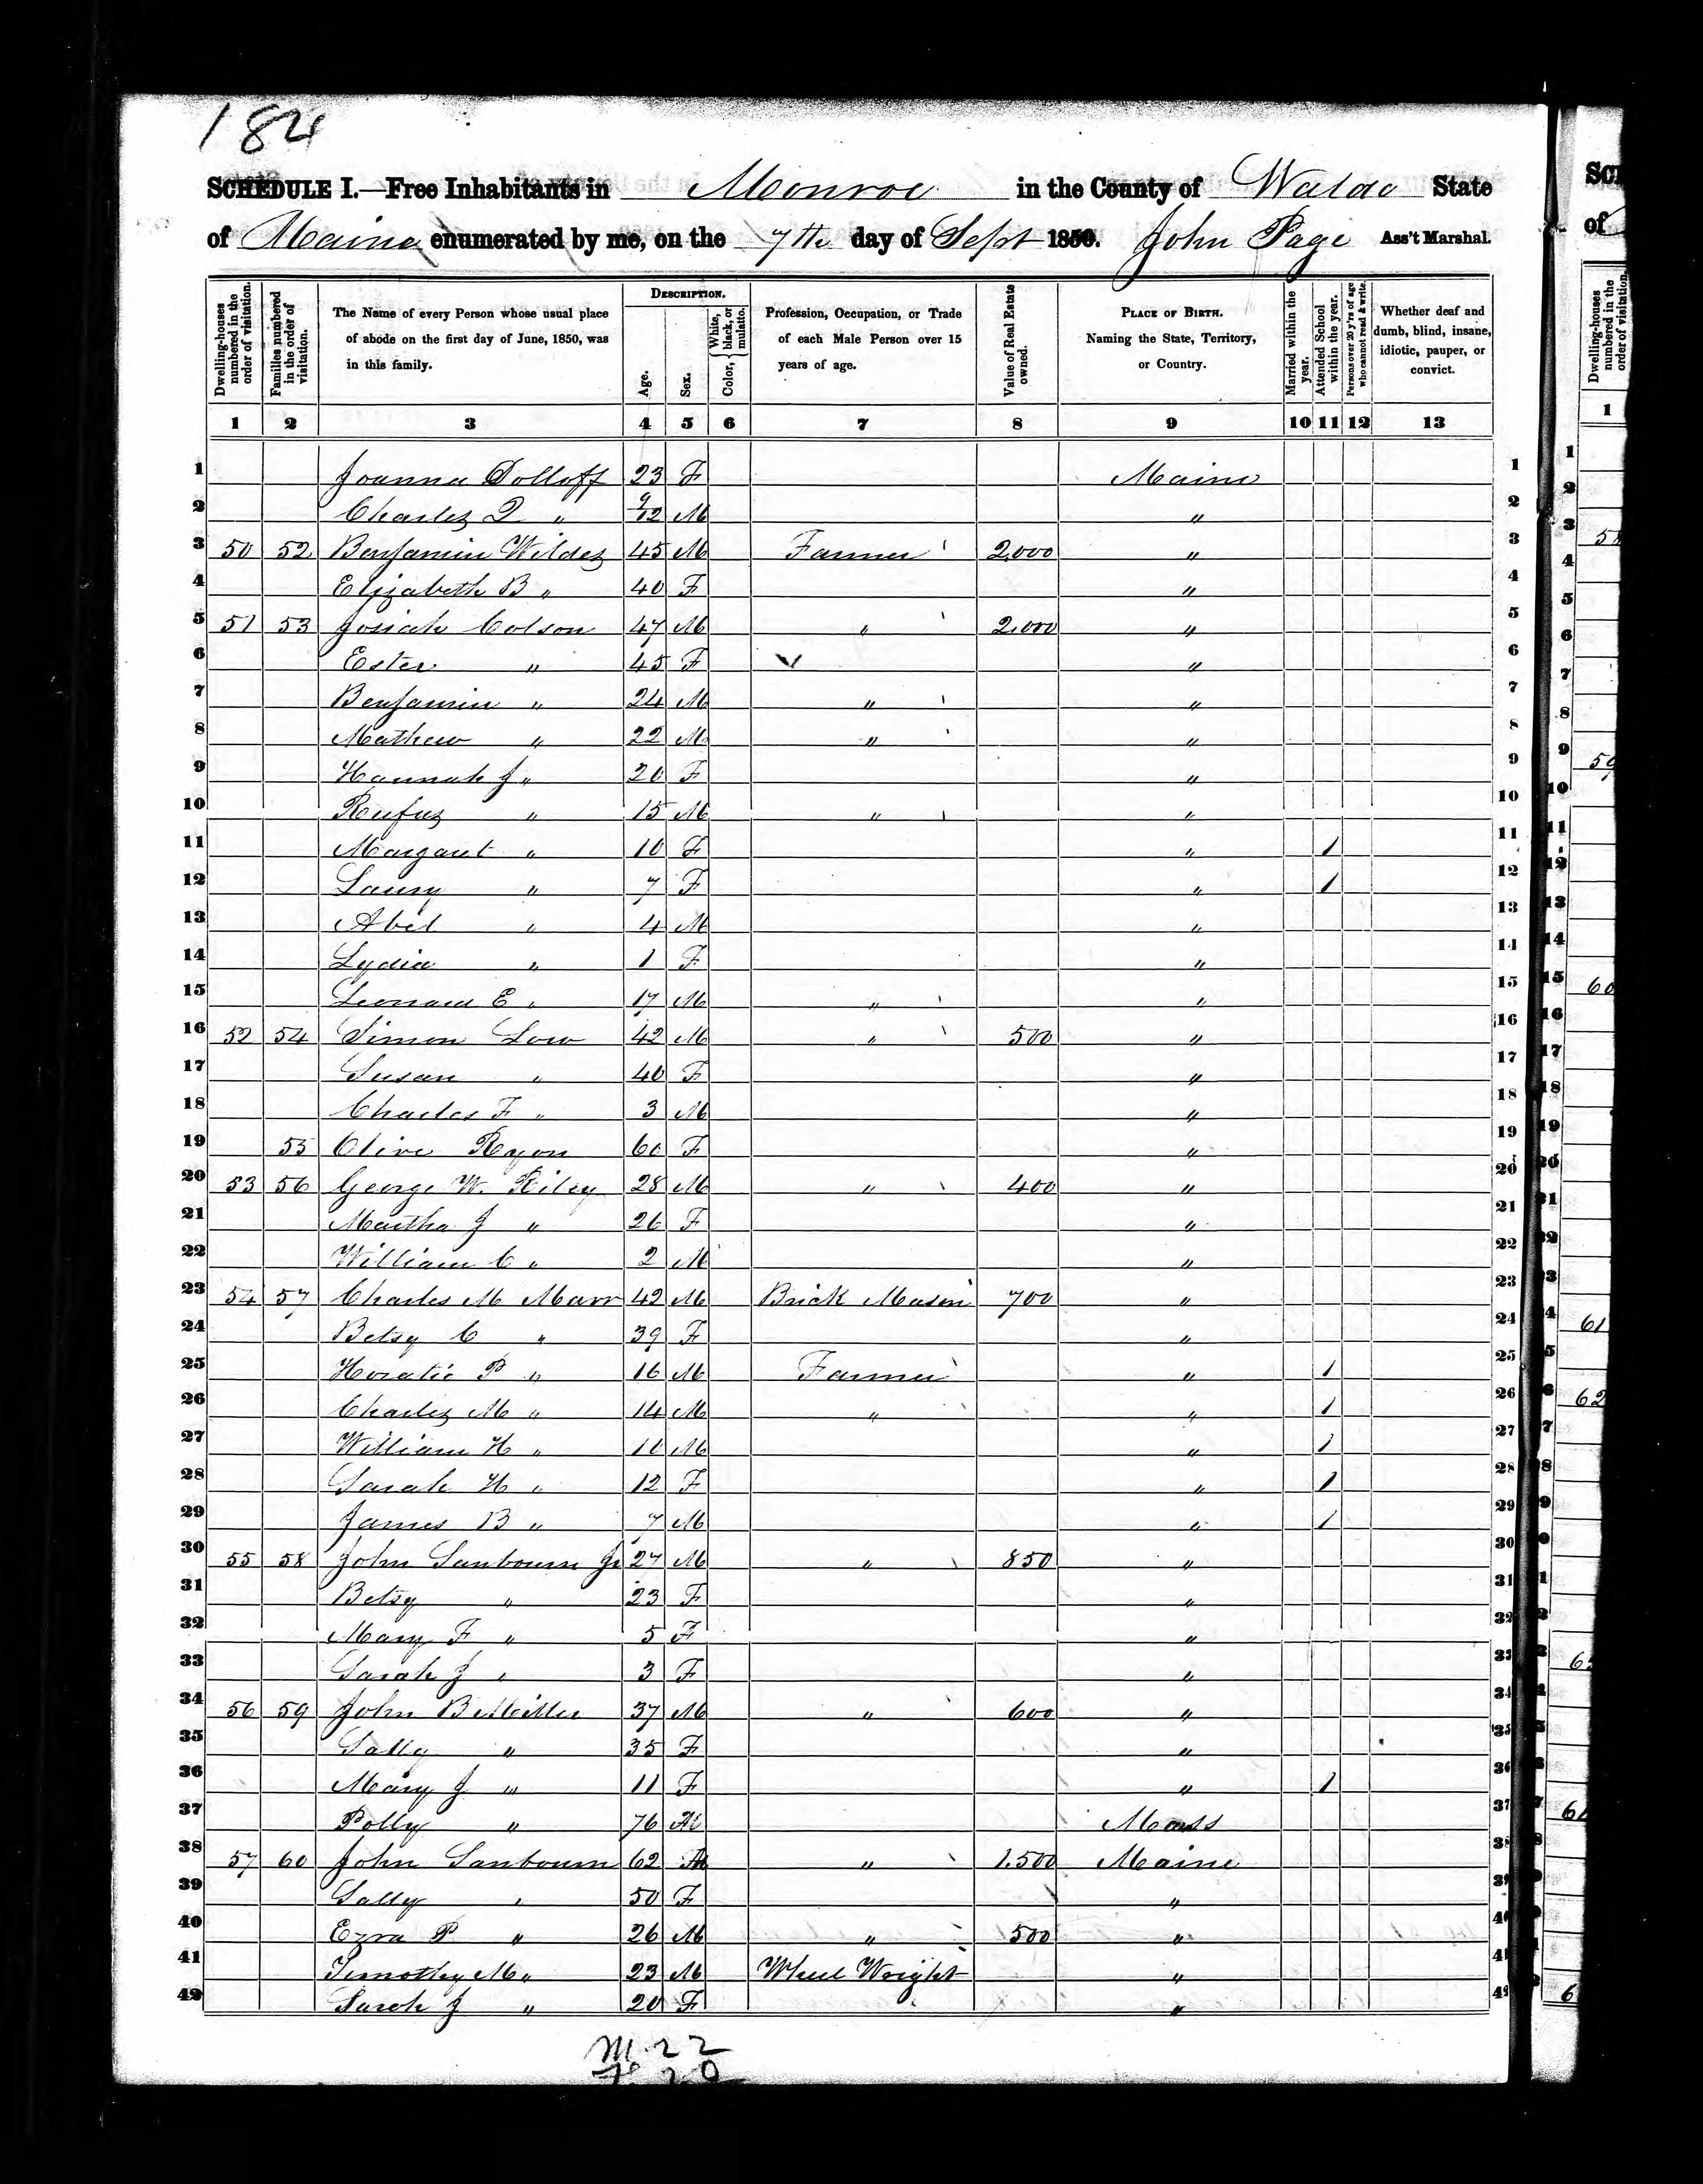 184
SCHEDULE I.—Free Inhabitants in Monroe in the County of Waldo State
of Maine enumerated by me, on the 7th day of Sept 1850. John Page Ass't Marshal.
Dwelling-houses numbered in the order of visitation.
Families numbered in the order of visitation.
The Name of every Person whose usual place of abode on the first day of June, 1850, was in this family.
DESCRIPTION.
Age.
Sex.
Color, { White, black, or mulatto.
Profession, Occupation, or Trade of each Male Person over 15 years of age.
Value of Real Estate owned.
PLACE OF BIRTH. Naming the State, Territory, or Country.
Married within the year.
Attended School within the year.
Persons over 20 y'rs of age who cannot read & write.
Whether deaf and dumb, blind, insane, idiotic, pauper, or convict.
1 2 3 4 5 6 7 8 9 10 11 12 13
1 Joanna Dolloff 23 F Maine 1
2 Charles Q " 9/12 M " 2
3 50 52 Benjamin Wildes 45 M Farmer 2,000 " 3
4 Elizabeth B " 40 F " 4
5 51 53 Josiah Colson 47 M " 2,000 " 5
6 Ester " 45 F " 6
7 Benjamin " 24 M " " 7
8 Mathew " 22 M " " 8
9 Hannah J " 20 F " 9
10 Rufus " 15 M " " 10
11 Margaret " 10 F " 1 11
12 Laury " 7 F " 1 12
13 Abel " 4 M " 13
14 Lydia " 1 F " 14
15 Leonard E " 17 M " " 15
16 52 54 Simon Low 42 M " 500 " 16
17 Susan " 40 F " 17
18 Charles F " 3 M " 18
19 55 Olive Ryon 60 F " 19
20 53 56 George W. Riley 28 M " 400 " 20
21 Martha J " 26 F " 21
22 William C " 2 M " 22
23 54 57 Charles M Marr 42 M Brick Mason 700 " 23
24 Betsy C " 39 F " 24
25 Horatio P " 16 M Farmer " 1 25
26 Charles M " 14 M " " 1 26
27 William H " 10 M " 1 27
28 Sarah H " 12 F " 1 28
29 James B " 7 M " 1 29
30 55 58 John Sanbourn Jr 27 M " 850 " 30
31 Betsy " 23 F " 31
32 Mary F " 5 F " 32
33 Sarah J " 3 F " 33
34 56 59 John B Miller 37 M " 600 " 34
35 Sally " 35 F " 35
36 Mary J " 11 F " 1 36
37 Polly " 76 Mass 37
38 57 60 John Sanbourn 62 M " 1.500 Maine 38
39 Sally " 50 F " 39
40 Ezra P " 26 M " 500 " 40
41 Timothy M " 23 M Wheel Wright " 41
42 Sarah J " 20 F " 42
M. 22
F. 20